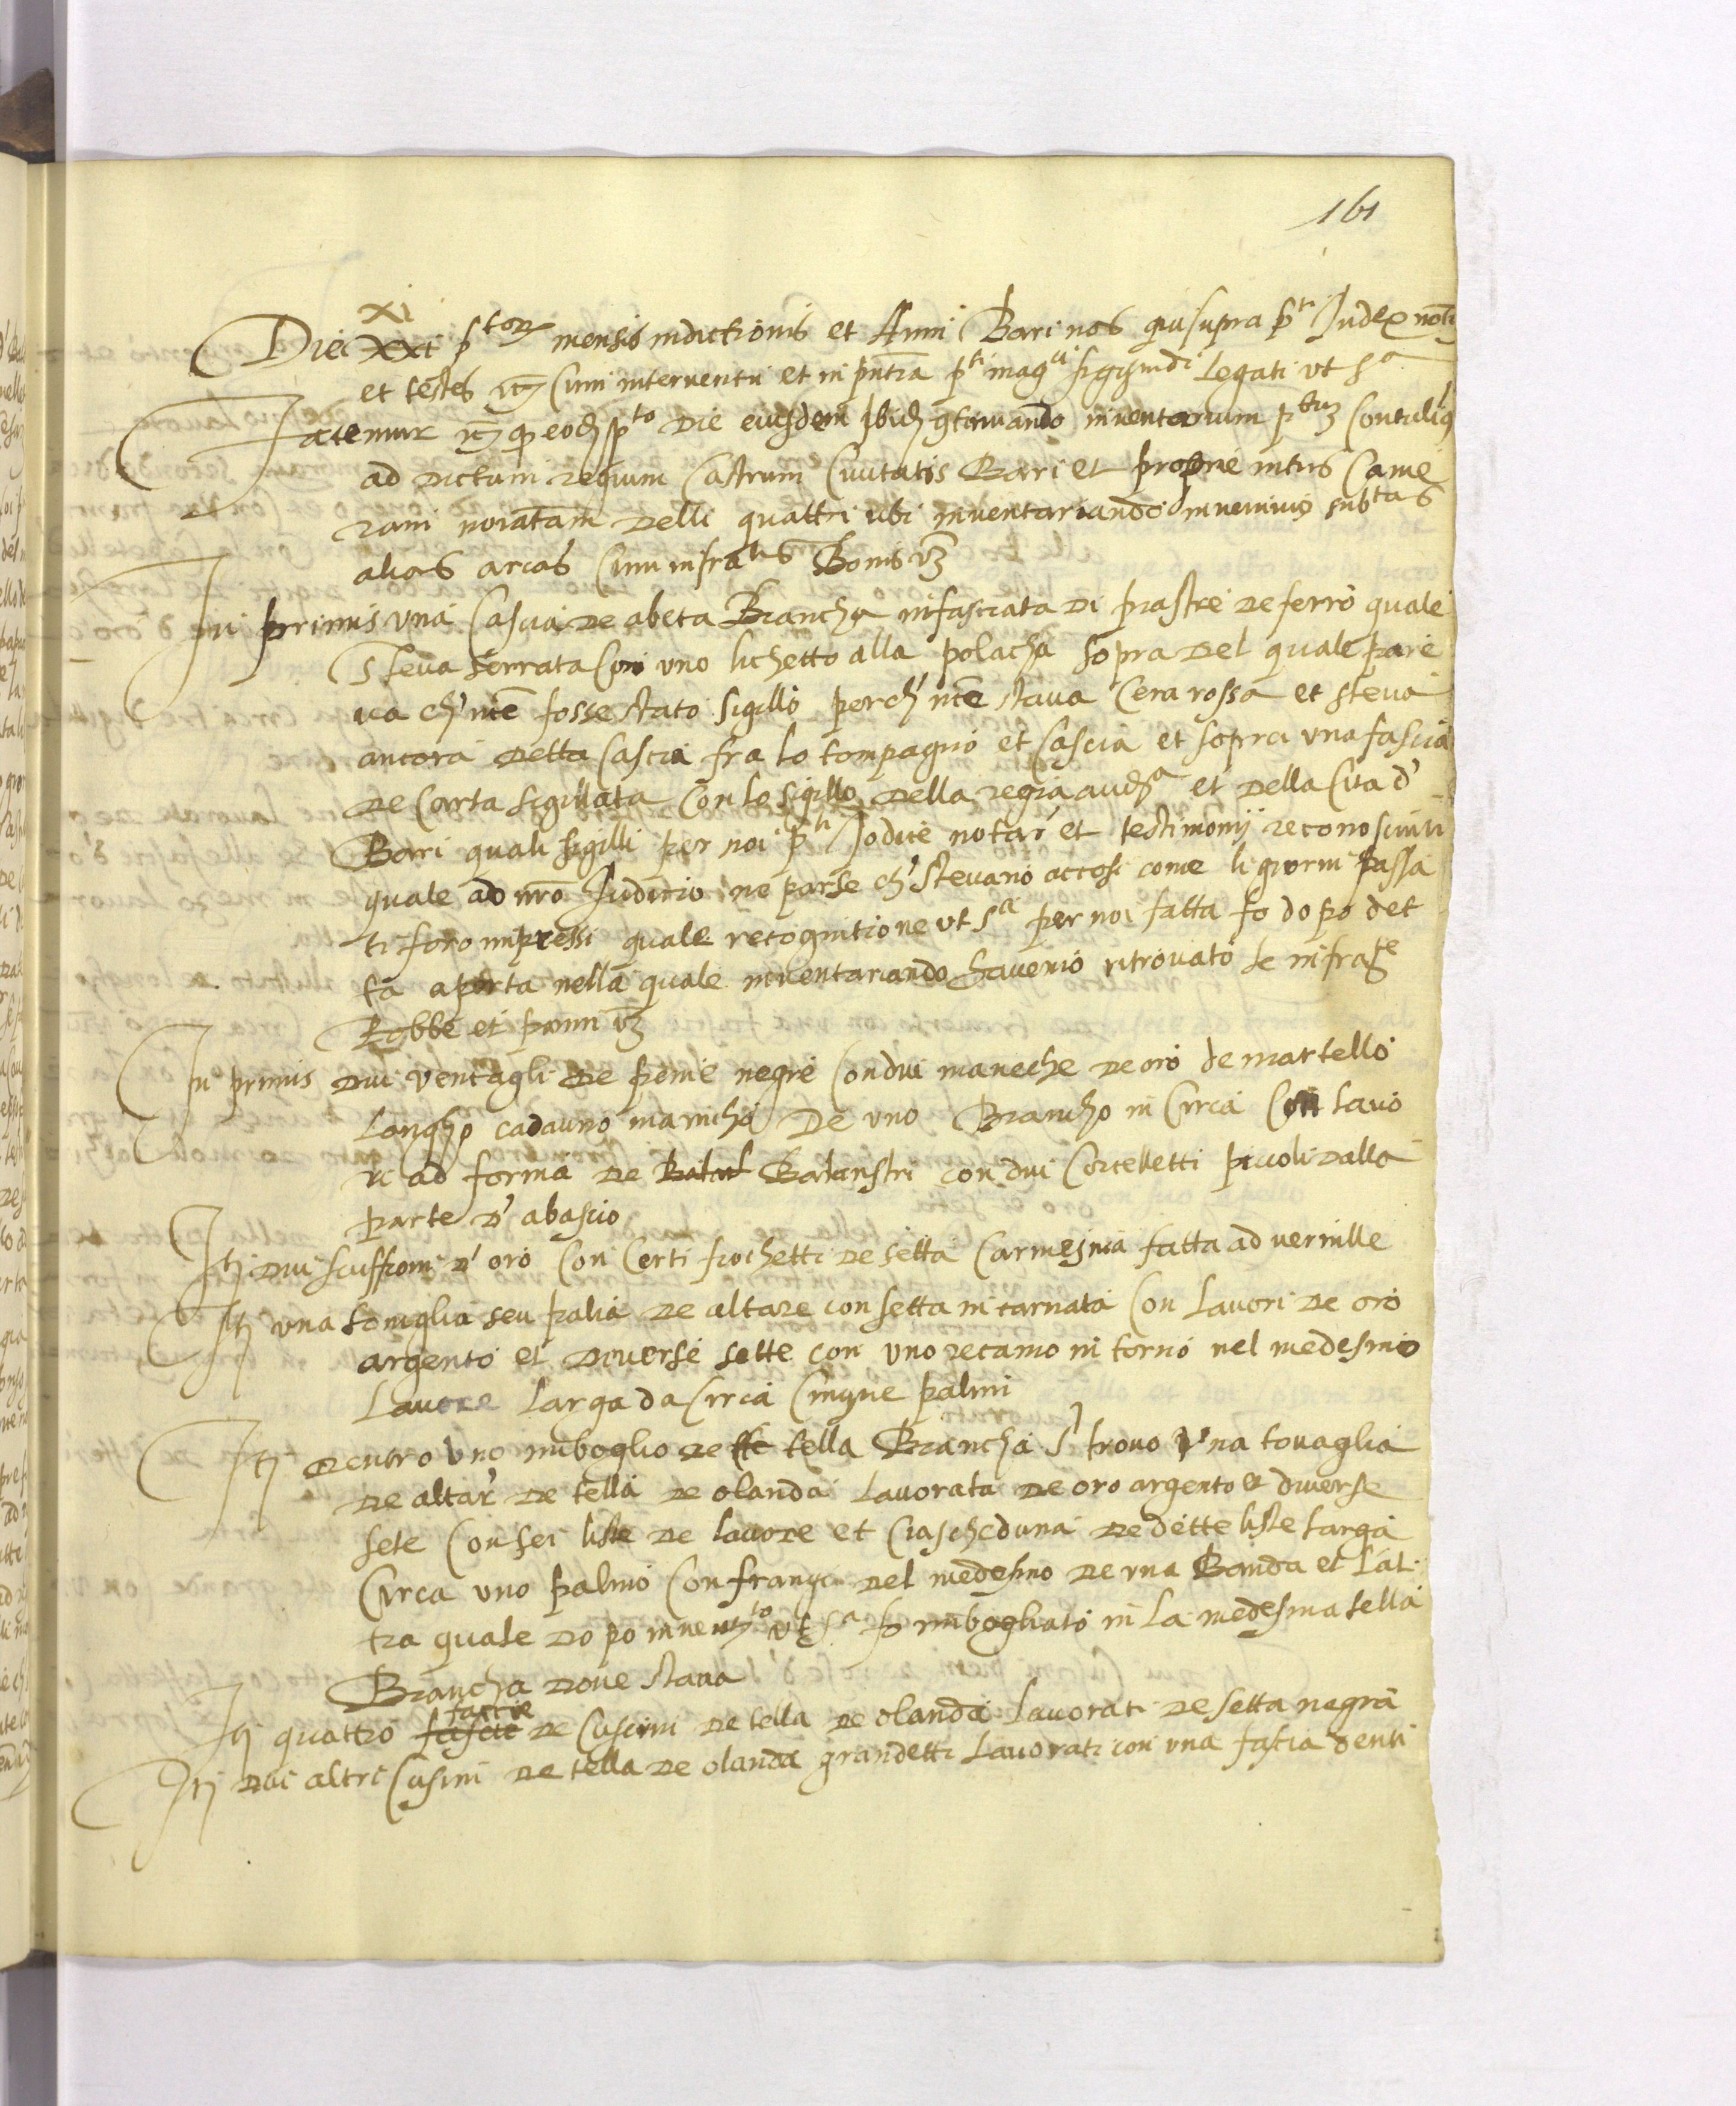 161
xi
Die xxi p̄torꝝ mensis indictionis et Anni Bari nos qui supra p̄ti Judex not
et testes cum interventu et in pntia p̄ti magci sigismdi Legati ut sa
Fatemur qd eod p̄to Die eiusdem ibid gtinuando inventarium p̄tum Contulimus
ad Dictum regium Castrum Civitatis Bari et proprie intus Came
ram noiatam Delli quattri ubi inventariando invenimus subtas
alias arcas Cum infratis Bonis vz
In primis una Cascia De abeta Brancha infasciata Di piastre De ferro quale
Steva serrata Con uno lichetto alla polacha sopra Del quale pare
va ch' nce fosse stato sigillo perch' nce stava Cera rossa et steva
ancora Detta Cascia fra lo compagno et Cascia et sopra una fascia
De Carta sigillata Con lo sigillo Della regia auda et Della Cita d'
Bari quali sigilli per noi p̄ti Jodice notar' et testimonij reconosciuti
quale ad nro Judicio ne parse ch' Stevano accosi come li giorni passa
ti foro impressi quale recognitione ut sa per noi fatta fo dopo det
ta aperta nella quale inventariando havemo ritrovato le infrate
Robbe et panni vz
In primis Dui ventagli De penne negre Con dui maneche De oro de martello
Longho cadauno manicho De uno Brancho in Circa Con lavo
ri ad forma De Balaul Balaustri con dui Cortelletti piccoli Dalla
parte D' abascio
Itj Dui scuffioni D' oro Con Certi fiochetti De setta Carmesina fatta ad vernille
Itj una toviglia seu palia De altare con setta incarnata Con Lavori De oro
argento et Diverse sette con uno recamo in torno nel medesmo
Lavore Larga da Circa Cinque palmi
Itj Dentro uno imboglio De tella Brancha s' trovo Una tovaglia
De altar' De tella De olanda Lavorata De oro argento et diverse
sete Con sei liste De lavore et Ciascheduna De dette liste larga
Circa uno palmo Con frangia Del medesmo De una Banda et l'al
tra quale Dopo inventto ut sa fo imbogliato in La medesma tella
Brancha Dove stava
faccie
Itj quattro fascie De Cuscini De tella De olanda Lavorati De setta negra
Itj Dui altri Cusini De tella De olanda grandetti Lavorati con una fascia denti